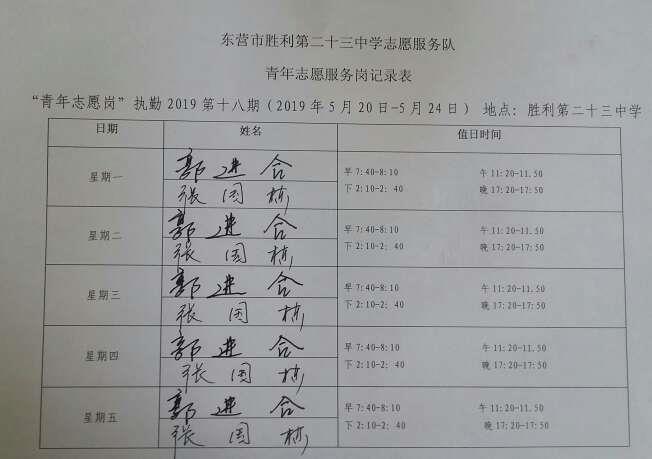 东营市胜利第二十三中学志愿服务队
青年志愿服务岗记录表
“青年志愿岗”执勤2019第十八期（2019年5月20日-5月24日） 地点：胜利第二十三中学
日期 姓名 值日时间
星期一 郭进合 早7:40-8:10 午11:20-11.50
张国栋 下2:10-2：40 晚17:20-17:50
星期二 郭进合 早7:40-8:10 午11:20-11.50
张国栋 下2:10-2：40 晚17:20-17:50
星期三 郭进合 早7:40-8:10 午11:20-11.50
张国栋 下2:10-2：40 晚17:20-17:50
星期四 郭进合 早7:40-8:10 午11:20-11.50
张国栋 下2:10-2：40 晚17:20-17:50
星期五 郭进合 早7:40-8:10 午11:20-11.50
张国栋 下2:10-2：40 晚17:20-17:50